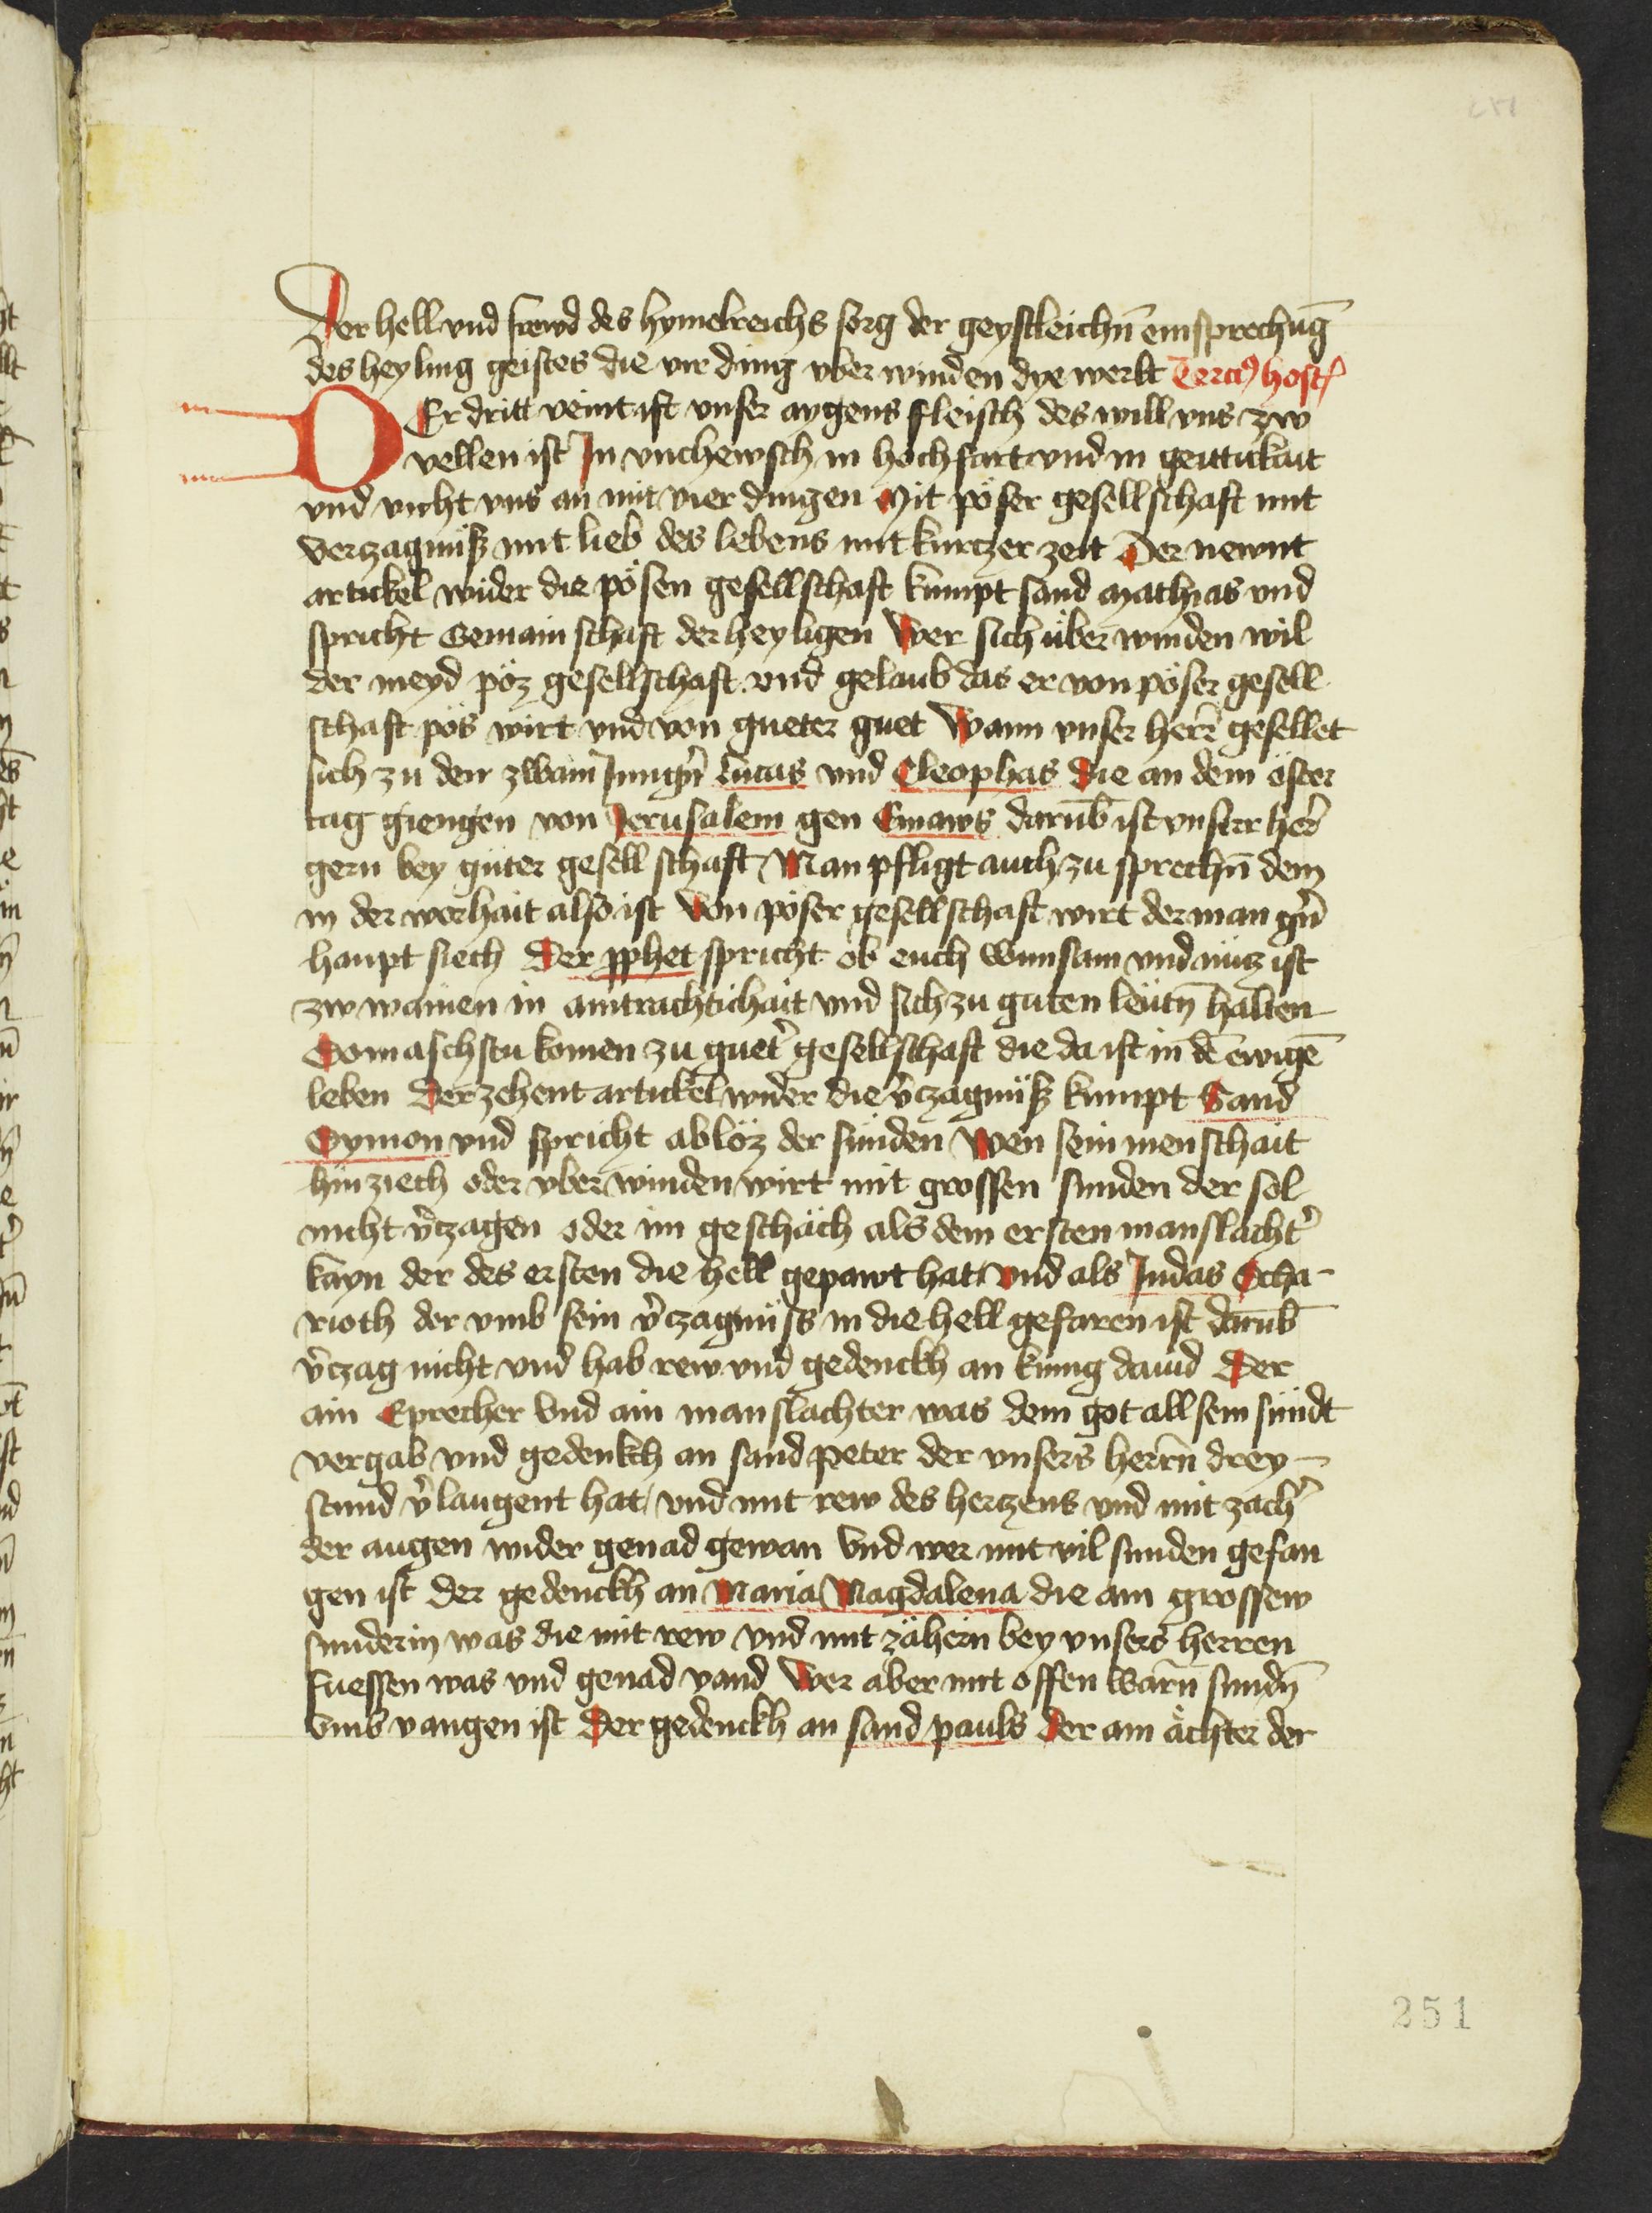 Der hell vnd frewd des hymelreichs sorg der geystleichn̄ einsprechūg
des heyling geistes die vir ding vber winden dye werlt Terciꝰ host̄
Er dritt veint ist vnser aygens fleisch des will vns zw
D vellen ist Jn vnchewsch in hochfart vnd in geittickait
vnd vicht vns an mit vier dingen Mit pöser gesellschaft mit
verzagnüß mit lieb des lebens mit kurtzer zeit Der newnt
artickel wider die pösen gesellschaft kumpt sand Mathias vnd
spricht Gemainschaft der heyligen Wer sich über winden wil
der meyd pöz gesellschaft vnd gelaub das er von pöser gesell
schaft pös wirt vnd von gueter guet Wann vnser herr̄ gesellet
sich zu den zwain Jungn̄ Lucas vnd Cleophas die an dem oster
tag giengen von Jerusalem gen Emaws darūb ist vnserr her̄
gern bey güter gesellschaft Man pfligt auch zu sprechn̄ dem
in der worhait also ist Von pöser gesellschaft wirt der man gn̄
haupt siech Der ꝓphet spricht ob euch wunsam vnd nüz ist
zw wanen in aintrachtichait vnd sich zu guten leütn̄ halten
So machstu komen zu guet̄ gesellschaft die da ist in dē ewigē
leben Der zehent artickel wider die v̄czagnüß kumpt Sand
Symon vnd spricht ablöz der sünden Wen sein menschait
hin ziech oder vber winden wirt mit grossen sunden der sol
nicht v̄czagen oder im geschäch als dem ersten manslacht̄
kayn der des ersten die hell gepawt hat vnd als Judas Scha-
rioth der vmb sein v̄czagnüss in die hell gefaren ist darūb
v̄czag nicht vnd hab rew vnd gedenckh an kunig dauid Der
ain Eprecher Vnd ain manslachter was dem got all sein sündt
vergab vnd gedenkh an sand Peter der vnsers herrn̄ drey-
stund v̄laugent hat vnd mit rew des herzens vnd mit zach̄
der augen wider genad gewan Vnd wer mit vil sunden gefan
gen ist der gedenckh an Maria Magdalena die ain grossew
sunderin was die mit rew vnd mit zähern bey vnsers herren
fuessen was vnd genad vand Wer aber mit offen warn̄ sundn̄
vmb vangen ist Der gedenckh an sand pauls Der ain ächter der
251